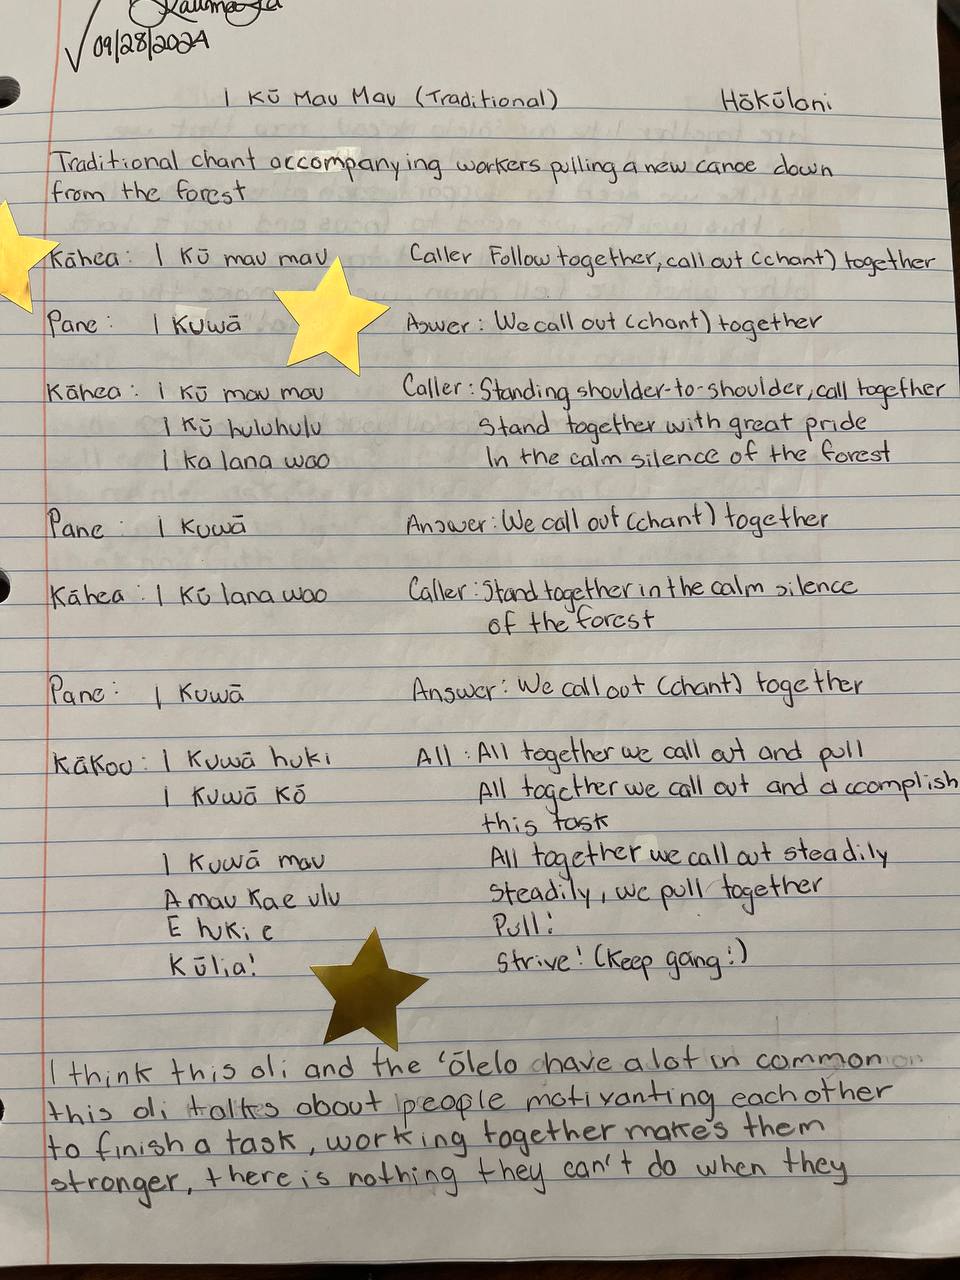 09/28/2024
I Kū Mau Mau (Traditional) Hōkūlani
Traditional chant accompanying workers pulling a new canoe down
from the forest
Kāhea: I Kū mau mau Caller Follow together, call out (chant) together
Pane: I Kuwā Aswer: We call out (chant) together
Kāhea: I Kū mau mau Caller: Standing shoulder-to-shoulder, call together
I Kū huluhulu Stand together with great pride
I ka lana wao In the calm silence of the forest
Pane: I Kuwā Answer: We call out (chant) together
Kāhea: I Kū lana wao Caller: Stand together in the calm silence
of the forest
Pane: I Kuwā Answer: We call out (chant) together
Kākou: I Kuwā huki All: All together we call out and pull
I Kuwā Kō All together we call out and accomplish
this task
I Kuwā mau All together we call out steadily
A mau Ka e ulu Steadily, we pull together
E huki e Pull!
Kūlia! Strive! (Keep gang!)
I think this oli and the ʻōlelo have a lot in common on
this oli talks about people motivanting each other
to finish a task, working together makes them
stronger, there is nothing they can't do when they